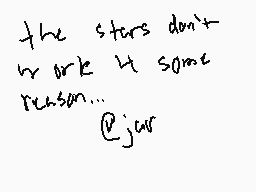 the stars don't
work 4 some
reason...
@jar